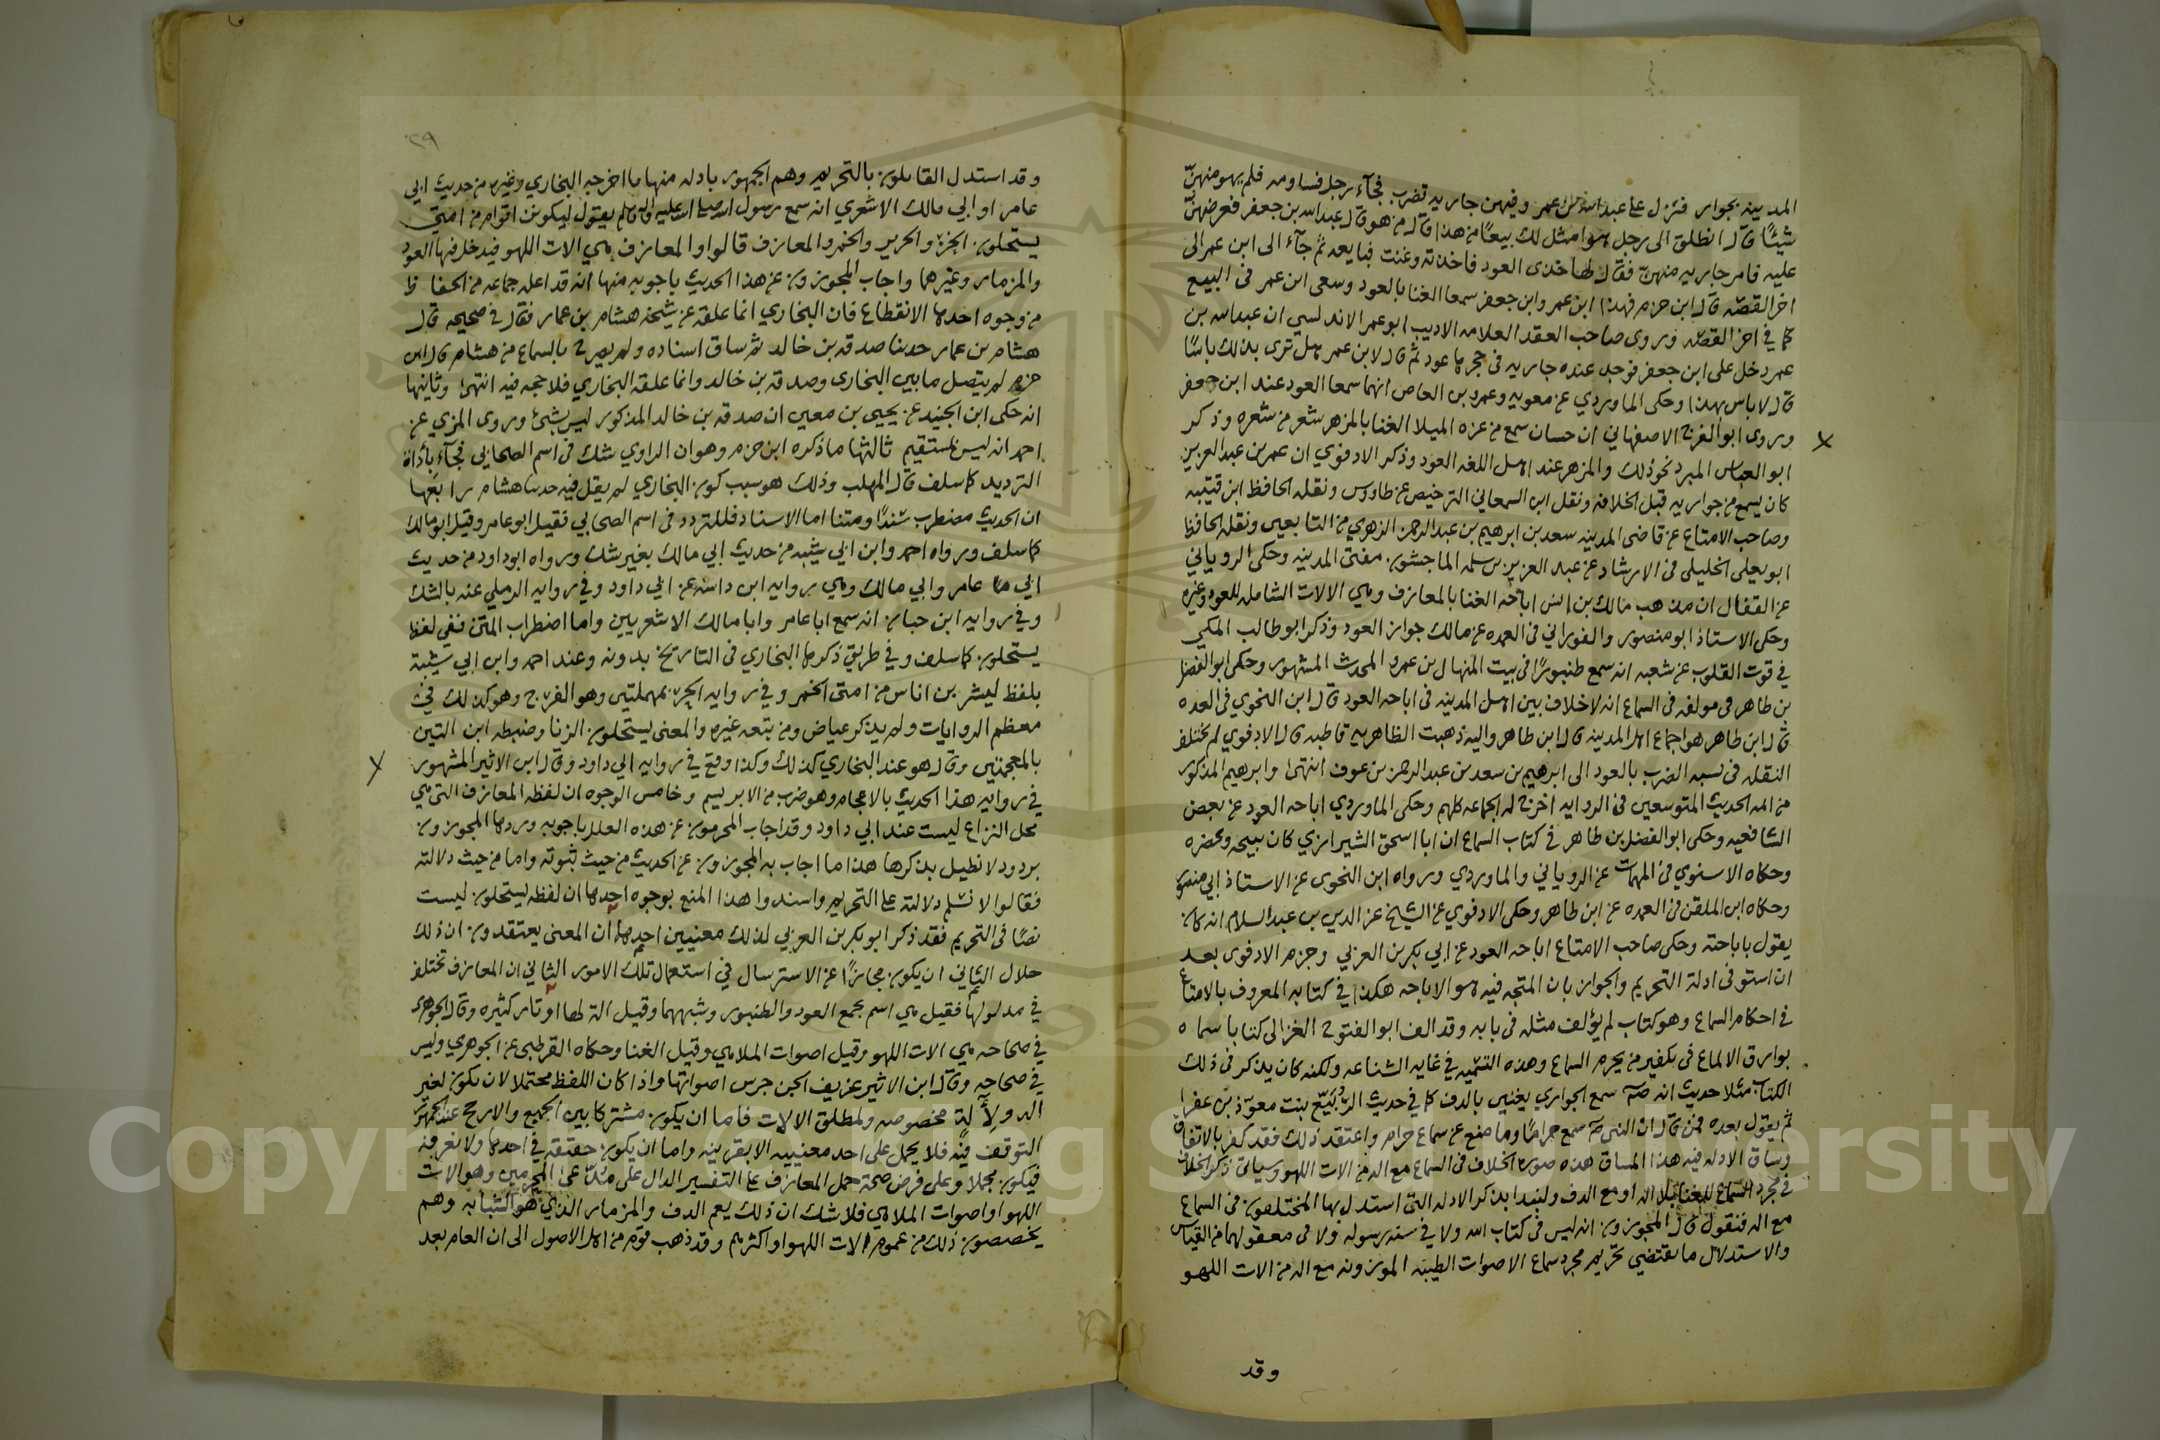 المدينه بجوار فنزل على عبد الله بن عمر وفيهن جاريه تضرب فجآء رجل فساومه فلم يهو منهنّ
شيئًا قال انطلق الى رجل هو امثل لك بيعًا من هذا قال من هو قال عبد الله بن جعفر فعرضهنّ
عليه فامر جاريه منهنّ فقال لها خذى العود فاخذته وغنت فبايعه ثم جآء الى ابن عمر الى
اخر القصّه قال ابن حزم فهذا ابن عمر وابن جعفر سمعا الغنا بالعود وسعى ابن عمر فى البيع
كما في اخر القصّه وروى صاحب العقد العلامه الاديب ابو عمر الاندلسي ان عبد الله بن
عمر دخل على ابن جعفر فوجد عنده جاريه فى حجرها عود ثم قال لابن عمر هل ترى بذلك باسًا
قال لا باس بهذا وحكى الماوردي عن معويه وعمرو بن العاص انهما سمعا العود عند ابن جعفر
وروى ابو الفرج الاصفهاني ان حسان سمع من عزه الميلا الغنا بالمزهر بشعر من شعره وذكر
ابو العباس المبرد نحو ذلك والمزهر عند اهل اللغه العود وذكر الادفوي ان عمر بن عبد العزيز
كان يسمع من جواريه قبل الخلافه ونقل ابن السمعاني الترخيص عن طاووس ونقله الحافظ ابن قتيبه
وصاحب الامتاع عن قاضى المدينه سعد بن ابرهيم بن عبد الرحمن الزهري من التابعين ونقله الحافظ
ابو يعلى الخليلى فى الارشاد عن عبد العزيز بن سلمه الماجشون مفتى المدينه وحكى الروياني
عن القفال ان مذهب مالك بن انس اباحه الغنا بالمعازف وهي الالات الشامله للعود وغيره
وحكى الاستاذ ابو منصور والفوراني فى العمده عن مالك جواز العود وذكر ابو طالب المكي
في قوت القلوب عن شعبه انه سمع طنبورًا فى بيت المنهال بن عمرو المحدث المشهور وحكى ابو الفضل
بن طاهر فى مولفه فى السماع انه لا خلاف بين اهل المدينه فى اباحه العود قال ابن النحوي فى العمده
قال ابن طاهر هو اجماع اهل المدينه قال ابن طاهر واليه ذهبت الظاهريه قاطبه قال الادفوي لم تختلف
النقله فى نسبه الضرب بالعود الى ابرهيم بن سعد بن عبد الرحمن بن عوف انتهى وابرهيم المذكور
من ائمه الحديث المتوسعين فى الروايه اخرج له الجماعه كلهم وحكى الماوردي اباحه العود عن بعض
الشافعيه وحكى ابو الفضل بن طاهر في كتاب السماع ان ابا اسحق الشيرازي كان يبيحه ويحضره
وحكاه الاسنوي فى المهمات عن الروياني والماوردي ورواه ابن النحوى عن الاستاذ ابي منصور
وحكاه ابن الملقن فى العمده عن ابن طاهر وحكى الادفوي عن الشيخ عز الدين بن عبد السلام انه كان
يقول باباحته وحكى صاحب الامتاع اباحه العود عن ابي بكر بن العربي وجزم الادفوى بعد
ان استوفى ادلة التحريم والجواز بان المتجه فيه هو الاباحه هكذا في كتابه المعروف بالامتاع
في احكام السماع وهو كتاب لم يؤلف مثله فى بابه وقد الف ابو الفتوح الغزالى كتابا سماه
بوارق الالماع فى تكفير من يحرم السماع وهذه التسميه في غايه الشناعه ولكنه كان يذكر فى ذلك
الكتاب مثلا حديث انه صم سمع الجواري يغنين بالدف كما في حديث الرُّبَيّع بنت معوّذ بن عفرا
ثم يقول بعده فمن قال ان النبي صم سمع حرامًا وما منع عن سماع حرام واعتقد ذلك فقد كفر بالاتفاق
وساق الادله فيه هذا المساق هذه صوره الخلاف فى السماع مع اله من الات اللهو وسياتى ذكر الخلاف
في مجرد السماع للغنا بلا اله او مع الدف ولنبدا بذكر الادله التى استدل بها المختلفون فى السماع
مع اله فنقول قال المجوزون انه ليس فى كتاب الله ولا في سنه رسوله ولا فى معقولهما من القياس
والاستدلال ما يقتضي تحريم مجرد سماع الاصوات الطيبه الموزونه مع اله من الات اللهو
وقد
٢٩
وقد استدل القايلون بالتحريم وهم الجمهور بادله منها ما اخرجه البخاري وغيره من حديث ابي
عامر او ابي مالك الاشعري انه سمع رسول الله صلى الله عليه واله وسلم يقول ليكونن اقوام من امتي
يستحلون الحر والحرير والخمر والمعازف قالوا والمعازف هي الات اللهو فيدخل فيها العود
والمزمار وغيرهما واجاب المجوزون عن هذا الحديث باجوبه منها انه قد اعله جماعه من الحفاظ
من وجوه احدها الانقطاع فان البخاري انما علقه عن شيخه هشام بن عمار فقال في صحيحه قال
هشام بن عمار حدثنا صدقه بن خالد ثم ساق اسناده ولم يصرح بالسماع من هشام قال ابن
حزم لم يتصل ما بين البخارى وصدقه بن خالد وانما علقه البخاري فلا حجه فيه انتهى وثانيها
انه حكى ابن الجنيد عن يحيى بن معين ان صدقه بن خالد المذكور ليس بشئ وروى المزي عن
احمد انه ليس بمستقيم ثالثها ما ذكره ابن حزم وهو ان الراوي شك فى اسم الصحابي فجآء بأداة
الترديد كما سلف قال المهلب وذلك هو سبب كون البخاري لم يقل فيه حدثنا هشام رابعها
ان الحديث مضطرب سندًا ومتنا اما الاسناد فللتردد فى اسم الصحابي فقيل ابو عامر وقيل ابو مالك
كما سلف ورواه احمد وابن ابي شيبه من حديث ابي مالك بغير شك ورواه ابو داود من حديث
ابي عامر وابي مالك وهي روايه ابن داسه عن ابي داود وفي روايه الرملي عنه بالشك
وفي روايه ابن حبان انه سمع ابا عامر وابا مالك الاشعريين واما اضطراب المتن ففي لفظ
يستحلون كما سلف وفي طريق ذكرها البخاري فى التاريخ بدونه وعند احمد وابن ابي شيبة
بلفظ ليشربن اناس من امتى الخمر وفي روايه الحِر بمهملتين وهو الفرج وهو كذلك في
معظم الروايات ولم يذكر عياض ومن تبعه غيره والمعنى يستحلون الزنا وضبطه ابن التين
بالمعجمتين وقال هو عند البخاري كذلك وكذا وقع في روايه ابي داود وقال ابن الاثير المشهور
في روايه هذا الحديث بالاعجام وهو ضرب من الابريسم وخامس الوجوه ان لفظه المعازف التى هي
محل النزاع ليست عند ابي داود وقد اجاب المحرمون عن هذه العلل باجوبه وردها المجوزون
بردود لا نطيل بذكرها هذا ما اجاب به المجوزون عن الحديث من حيث ثبوته واما من حيث دلالته
فقالوا لا نسلم دلالته على التحريم واسندوا هذا المنع بوجوه احدها ان لفظه يستحلون ليست
نصًا فى التحريم فقد ذكر ابو بكر بن العربي لذلك معنيين احدهما ان المعنى يعتقدون ان ذلك
حلال الثاني ان يكون مجازًا عن الاسترسال في استعمال تلك الامور الثاني ان المعازف تختلف
في مدلولها فقيل هي اسم يجمع العود والطنبور وشبههما وقيل اله لها اوتار كثيره وقال الجوهري
في صحاحه هي الات اللهو وقيل اصوات الملاهي وقيل الغنا وحكاه القرطبي عن الجوهري وليس
في صحاحه وقال ابن الاثير عزيف الجن جرس اصواتها واذا كان اللفظ محتملا لان يكون لغير
اله ولآلة مخصوصه ولمطلق الالات فاما ان يكون مشتركا بين الجميع والارجح عند الجمهور
التوقف فيه فلا يحمل على احد معنييه الا بقرينه واما ان يكون حقيقه في احدها ولا نعرفه
فيكون مجملا وعلى فرض صحة حمل المعازف على التفسير الدال على مدّعى المحرمين وهو الات
اللهو او اصوات الملاهي فلا شك ان ذلك يعم الدف والمزمار الذي هو الشبابه وهم
يخصصون ذلك من عموم الات اللهو او اكثرهم وقد ذهب قوم من اهل الاصول الى ان العام بعد
Copyright © King Saud University